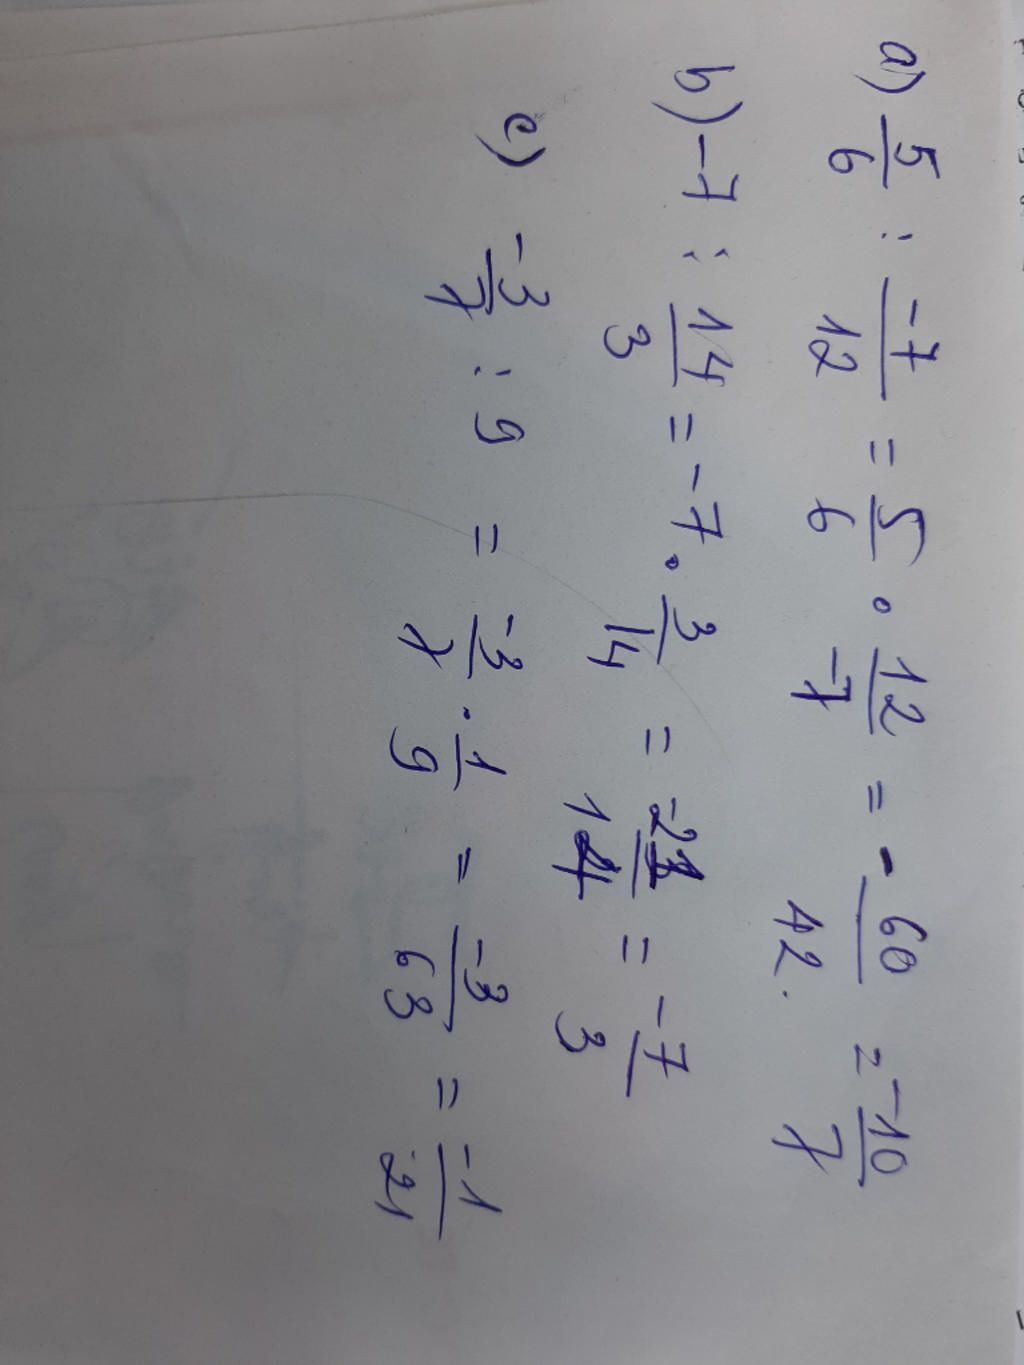 a) 5/6 : -7/12 = 5/6 • 12/-7 = - 60/42. = -10/7
b) -7 : 14/3 = -7 • 3/14 = -21/14 = -7/3
c) -3/7 : 9 = -3/7 · 1/9 = -3/63 = -1/21